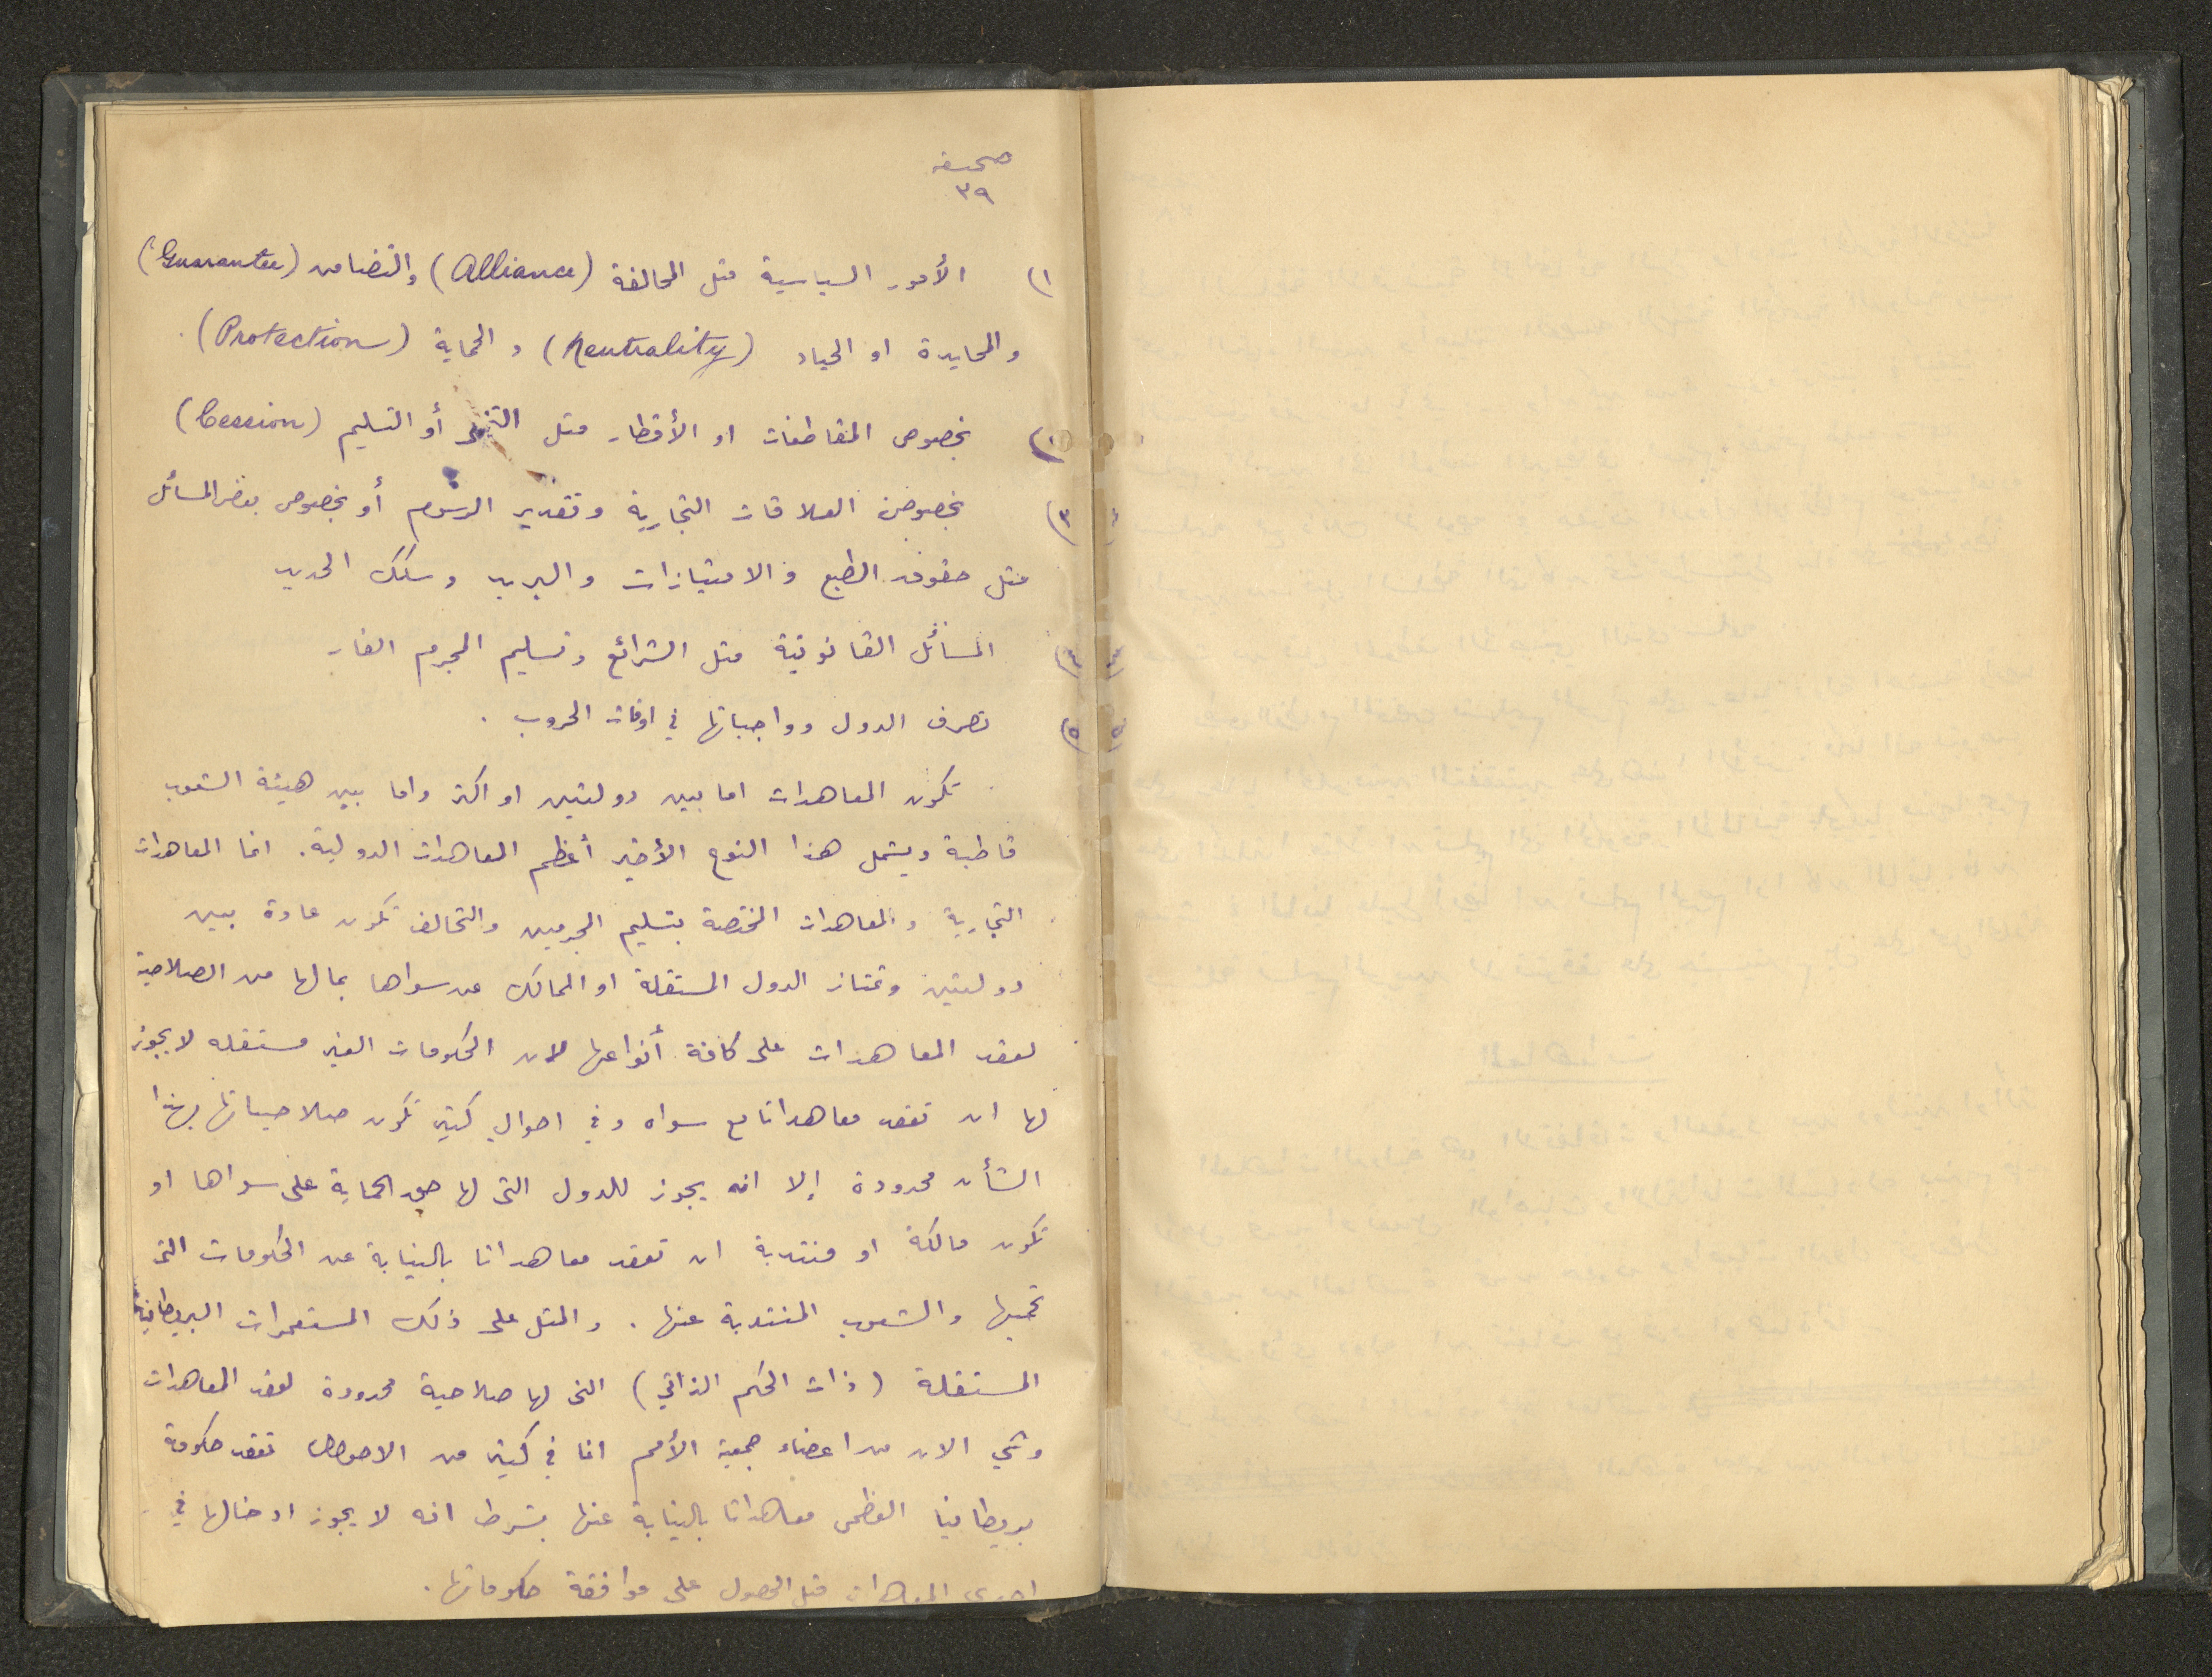 صحيفه
٣٩
١) الأمور السياسية مثل المحالفة (Alliance) والتضامن (Guarantee)
والمحايدة او الحياد (Neutrality) والحماية (Protection)
بخصوص المقاطعات او الأقطار مثل أو التسليم (Cession)
٣) بخصوص العلاقات التجارية وتقدير الرسوم أو بخصوص بعض المسائل
مثل حقوق الطبع والامتيازات والبريد وسلك الحديد
٤) المسائل القانونية مثل الشرائع وتسليم المجرم الفار
٥) تصرف الدول وواجباتها في اوقات الحروب .
تكون المعاهدات اما بين دولتين او اكثر واما بين هيئة الشعوب
قاطبة ويشمل هذا النوع الأخير أعظم المعاهدات الدولية. انما المعاهدات
التجارية والمعاهدات المختصة بتسليم المجرمين والتحالف تكون عادة بين
دولتين وتمتاز الدول المستقلة او الممالك عن سواها بما لها من الصلاحية
لعقد المعاهدات على كافة أنواعها لان الحكومات الغير مستقله لا يجوز
لها ان تعقد معاهداتا مع سواه وفي احوال كثير تكون صلاحياتها بهذا
الشأن محدودة إلا انه يجوز للدول التى لها حق الحماية على سواها او
تكون مالكة او منتدبة ان تعقد معاهداتا بالنيابة عن الحكومات التى
تحميها والشعوب المنتدبة عنها . والمثل على ذلك المستعمرات البريطانية
المستقلة (ذات الحكم الذاتي) التى لها صلاحية محدودة لعقد المعاهدات
وهي الان من اعضاء جمعية الأمم انما في كثير من الاحوال تعقد حكومة
بريطانيا العظمى معاهداتا بالنيابة عنها بشرط انه لا يجوز ادخالها في
احدى المعاهدات قبل الحصول على موافقة حكوماتها .